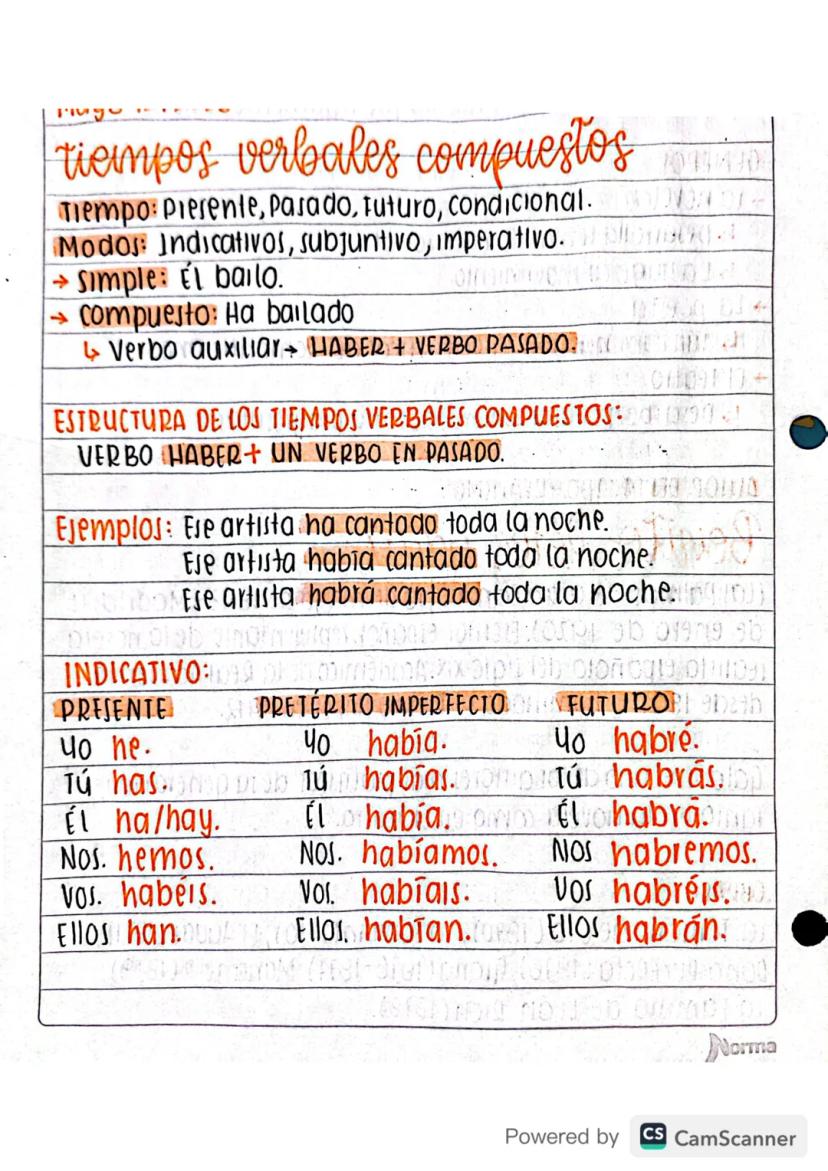 tiempos verbales compuestos
Tiempo: Presente, Pasado, Futuro, condicional.
Modos: Indicativos, subjuntivo, imperativo.
→ Simple: Él bailo.
→ Compuesto: Ha bailado
↳ Verbo auxiliar → HABER + VERBO PASADO.
ESTRUCTURA DE LOS TIEMPOS VERBALES COMPUESTOS:
VERBO HABER + UN VERBO EN PASADO.
Ejemplos: Ese artista ha cantado toda la noche.
Ese artista había cantado toda la noche.
Ese artista habrá cantado toda la noche.
INDICATIVO:
PRESENTE PRETÉRITO IMPERFECTO FUTURO
Yo he. Yo había. Yo habré.
Tú has. Tú habías. Tú habrás.
Él ha/hay. Él había. Él habrá.
Nos. hemos. Nos. habíamos. Nos habremos.
Vos. habéis. Vos. habíais. Vos habréis.
Ellos han. Ellos. habían. Ellos habrán.
Norma
Powered by CS CamScanner